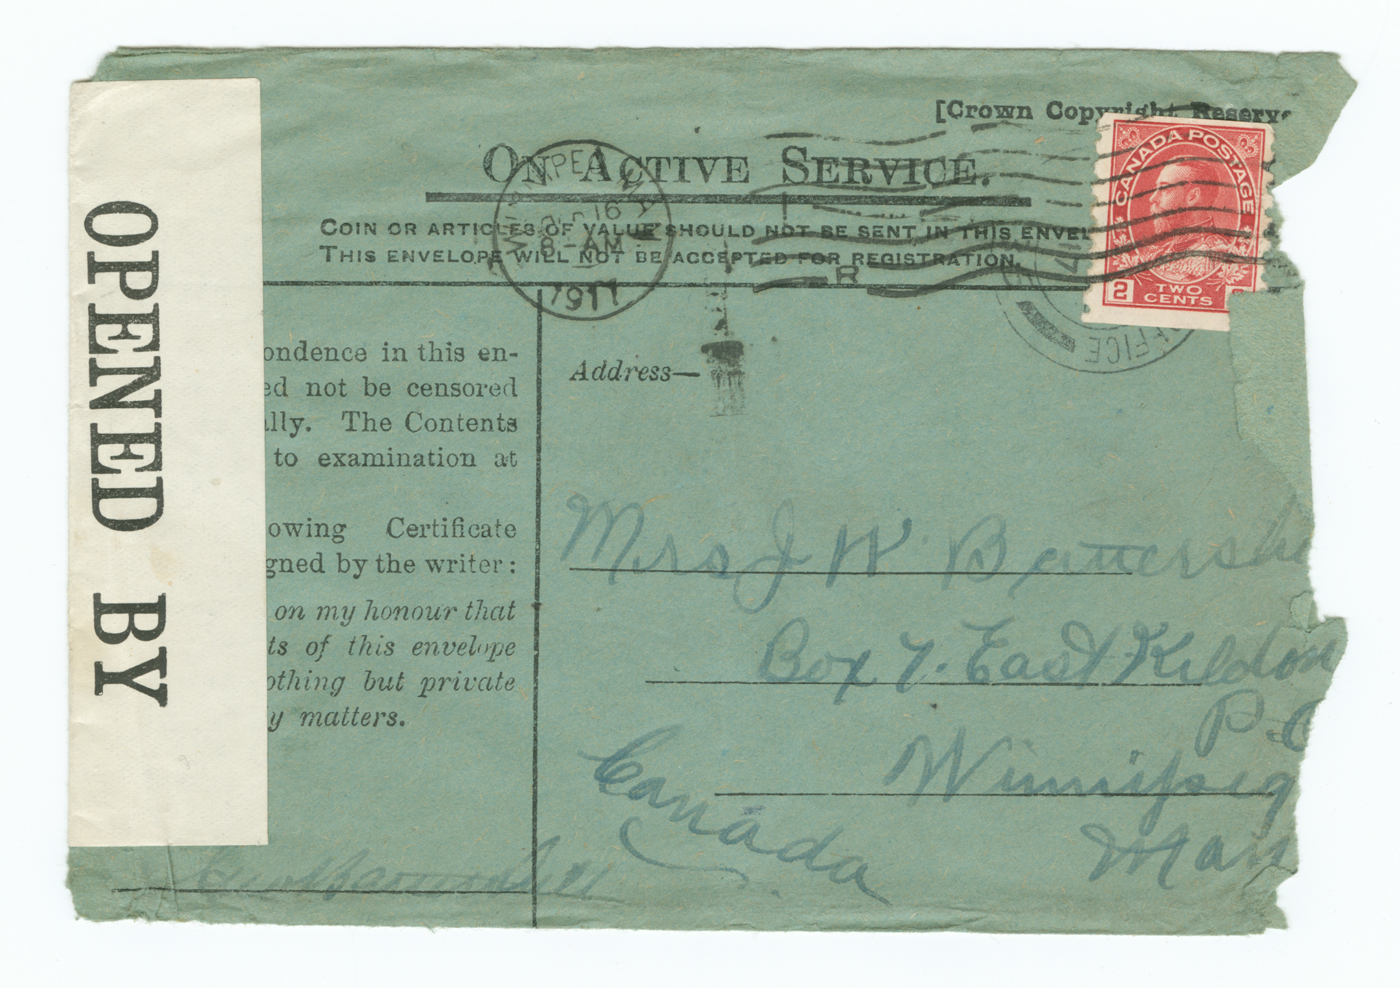 [Crown Copyright Reserve
ON ACTIVE SERVICE.
COIN OR ARTICLES OF VALUE SHOULD NOT BE SENT IN THIS ENVEL
THIS ENVELOPE WILL NOT BE ACCEPTED FOR REGISTRATION.
WINNIPEG MAN
16
8-AM
1917
R
CANADA POSTAGE
2 TWO CENTS
FFICE
OPENED BY
ondence in this en-
ed not be censored
ally. The Contents
to examination at
owing Certificate
gned by the writer:
on my honour that
ts of this envelope
othing but private
y matters.
Address—
Mrs J W Battersh
Box 7. East Kildon
P.O
Winnipeg
Man
Canada